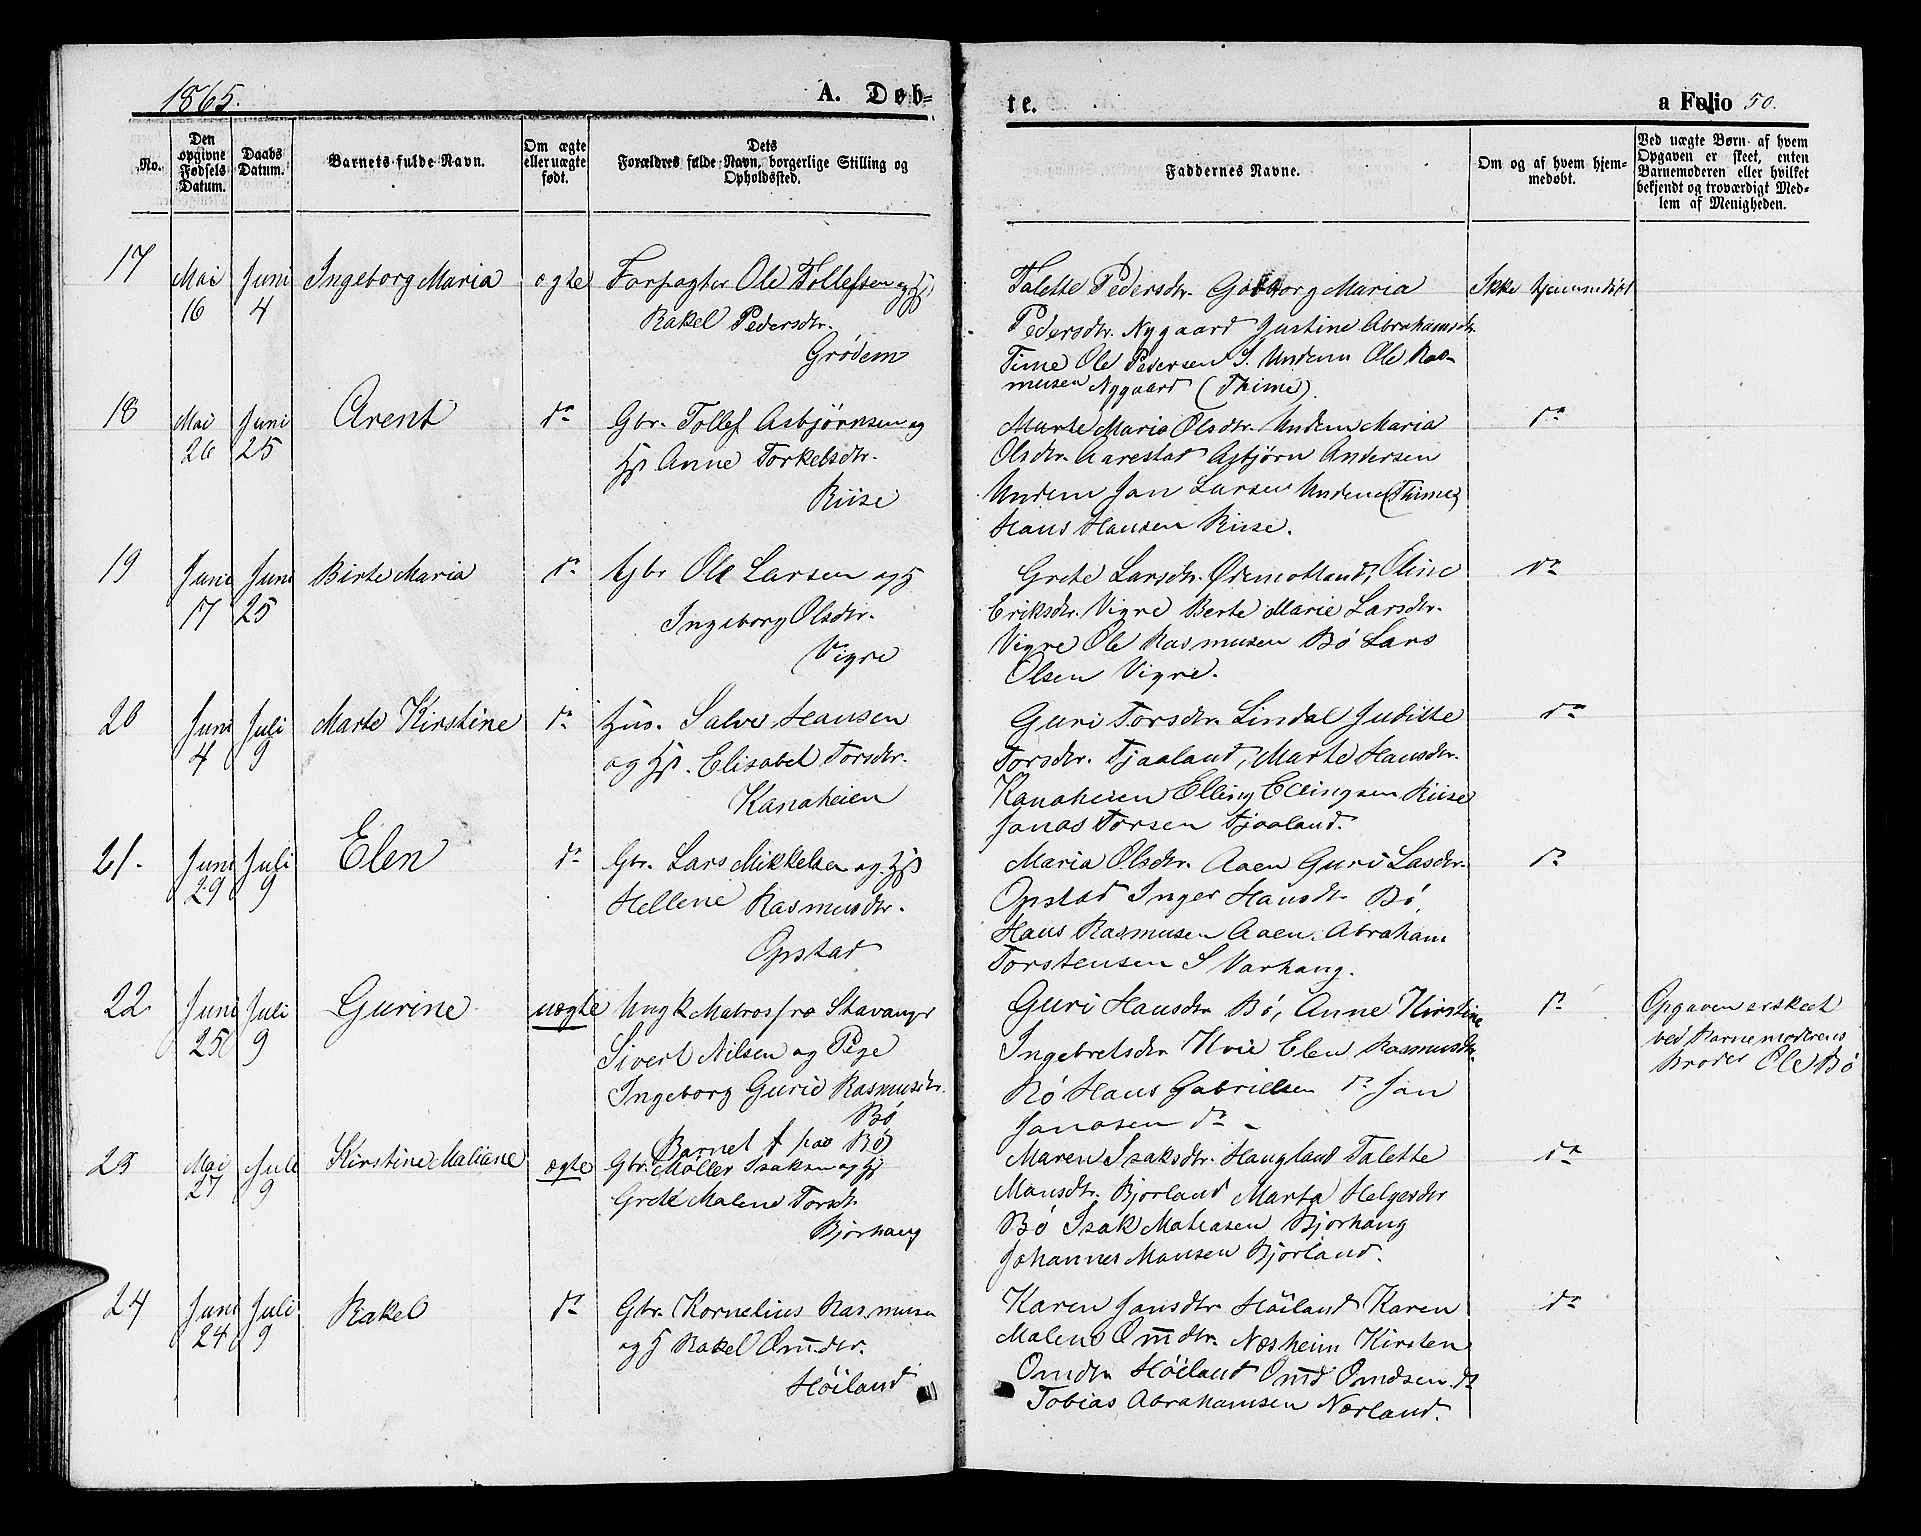 1865.
A. Døb-
te.
a Folio 50.
No.
Den opgivne Fødsels Datum.
Daabs Datum.
Barnets fulde Navn.
Om ægte eller uægte født.
Dets Forældres fulde Navn, borgerlige Stilling og Opholdssted.
Faddernes Navne.
Om og af hvem hjemmedøbt.
Ved uægte Børn af hvem Opgaven er skeet, enten Barnemoderen eller hvilket bekjendt og troværdigt Medlem af Menigheden.
17
Mai 16
Juni 4
Ingeborg Maria
ægte
Forpagter Ole Tollefsen og
Rakel Pedersdtr.
Grødem
Talette Pedersdtr. Maria
Pedersdtr. Nygaard Justine Abrahamsdtr.
Time Ole Pedersen S. Undem Ole Ras-
musen Nygaard (Thime)
Ikke hjemmedøbt
18
Mai 26
Juni 25
Arent
do
Gbr. Tollef Asbjørnsen og
Hst Anne Torkelsdtr.
Riise
Marte Maria Olsdtr. Undem Maria
Olsdtr. Aarestad Asbjørn Andersen
Undem Jan Larsen Undem (Thime)
Hans Hansen Riise.
do
19
Juni 17
Juni 25
Birte Maria
do
Gbr Ole Larsen og H
Ingeborg Olsdtr.
Vigre
Grete Larsdtr. Ødemotland, Oline
Eriksdtr. Vigre Berte Marie Larsdtr.
Vigre Ole Rasmusen Bö Lars
Olsen Vigre.
do
20
Juni 4
Juli 9
Marte Kirstine
do
Hus. Salve Hansen
og Hst. Elisabet Torsdtr.
Kanaheien
Guri Torsdtr. Lindal Juditte
Torsdtr. Tjaaland, Marte Hansdtr.
Kanaheien Elling Ellingsen Riise
Jonas Torsen Tjaaland.
do
21.
Juni 29
Juli 9
Elen
do
Gbr. Lars Mikkelsen og Hst
Hellene Rasmusdtr.
Opstad
Maria Olsdtr. Aaen Guri Lasdtr.
Opstad Inger Hansdtr Bö
Hans Rasmusen Aaen. Abraham
Torstensen S Varhaug.
do
22
Juni 25
Juli 9
Gurine
uægte
Ungk Matros fra Stavanger
Sivert Nilsen og Pige
Ingeborg Gurie Rasmusdtr.
Bö
Guri Hansdtr Bö, Anne Kirstine
Ingebretsdtr Hvie Elen Rasmusdtr.
Bö Hans Gabrielsen do Jan
Janasen do -
do
Opgaven er skeet
ved Barnemoderens
Broder Ole Bö
23
Mai 27
Juli 9
Kirstine Maliane
ægte
Barnet f paa Bö
Gbr. Møller Isaksen og H
Grete Malene Torsdtr.
Bjorhaug
Maren Isaksdtr. Haugland Talette
Mansdtr. Bjorland Marta Helgesdtr
Bö Isak Matiasen Bjorhaug
Johannes Mansen Bjorland.
do
24
Juni 24
Juli 9
Rakel
do
Gbr. Kornelius Rasmusen
og H Rakel Om̅dtr.
Höiland
Karen Jansdtr Höiland Karen
Malene Om̅dtr. Næsheim Kirsten
Omdtr. Höiland Omd Omdsen do
Tobias Abrahamsen Nærland.
do